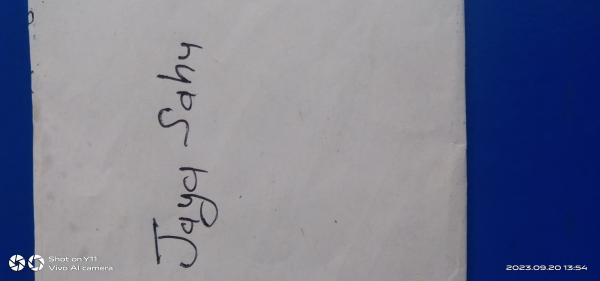 Jaya Sahu
Shot on Y11
Vivo AI camera
2023.09.20 13:54